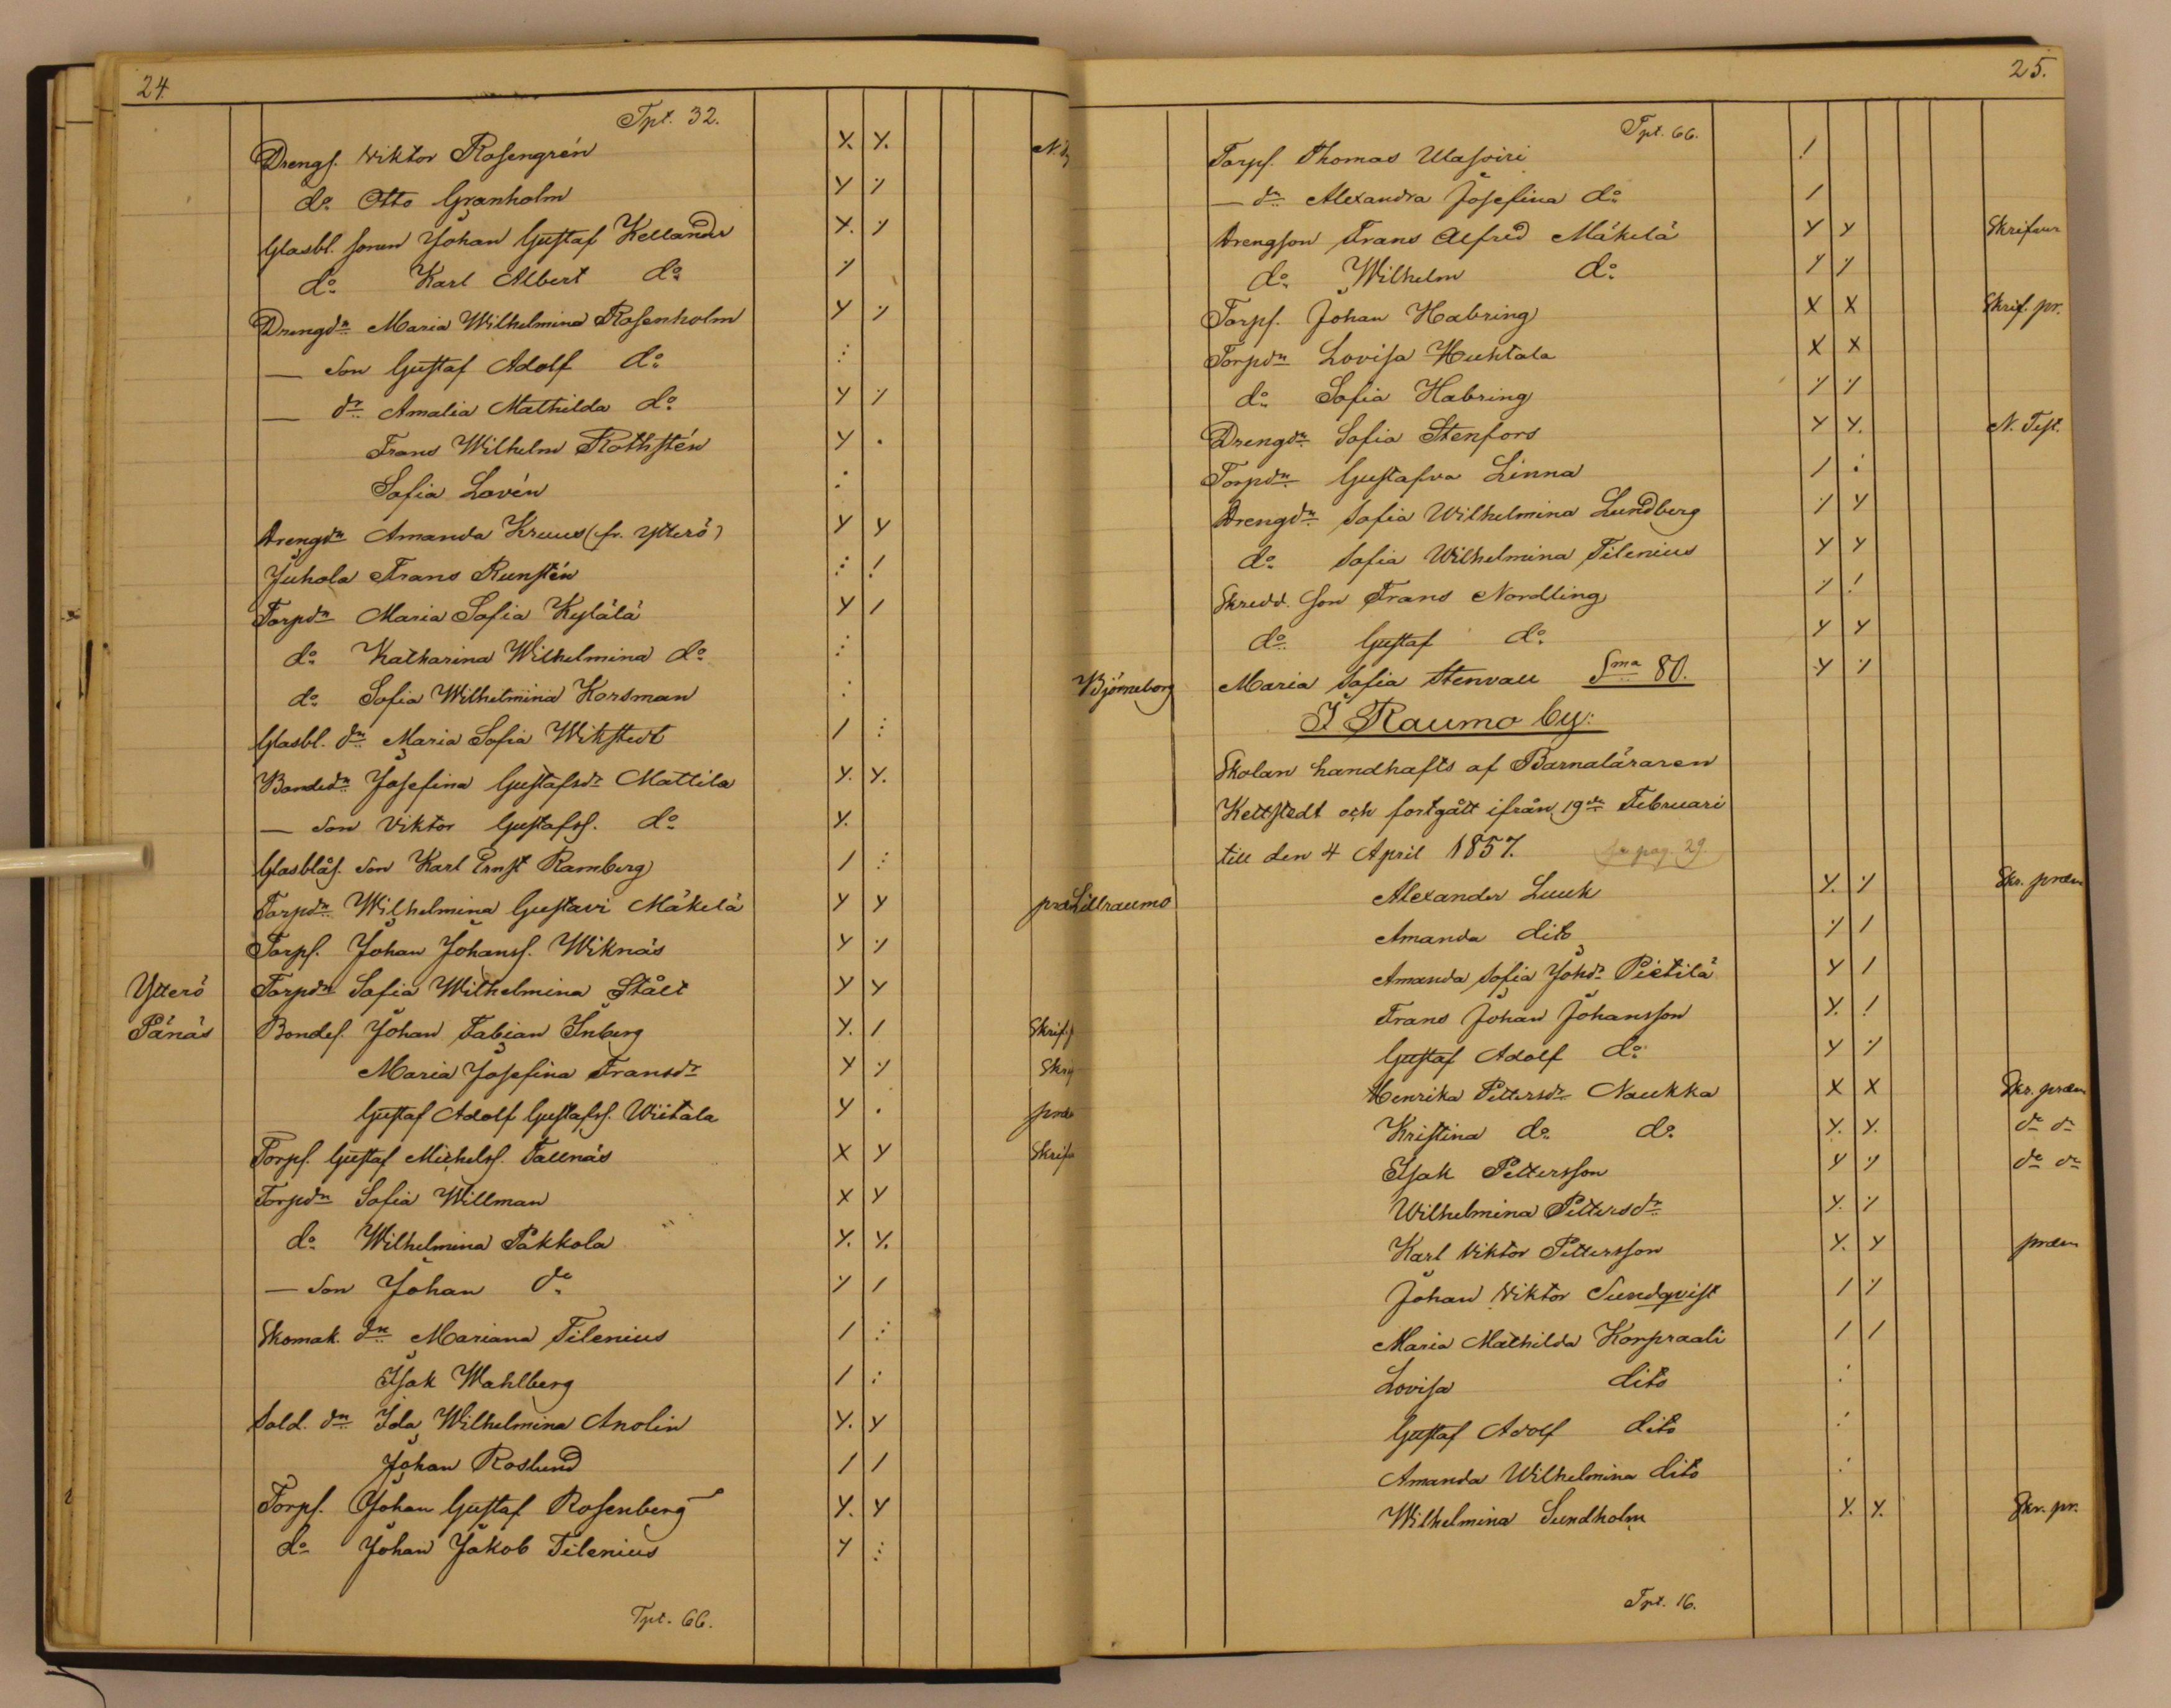 24.
Tpt. 32.
Drengs. Viktor Rosengrén Y. Y.
do. Otto Granholm Y ⁒
Glasbl. sonen Johan Gustaf Kellander X. ⁒
do. Karl Albert do. ⁒
Drengdn Maria Wilhelmina Rosenholm Y ⁒
— Son Gustaf Adolf do.
— dr. Amalia Mathilda do. Y ⁒
Frans Wilhelm Rothstén Y .
Sofia Lovén :
Drengdn Amanda Kruus (fr. Ytterö) Y Y
Juhola Frans Runstén
Torpdn Maria Sofia Kylälä Y /
do. Katharina Wilhelmina do.
do. Sofia Wilhelmina Korsman
Glasbl. dn. Maria Sofia Wikstedt /
Bondedn. Josefina Gustafsdr. Mattila Y. Y.
— Son Viktor Gustafss. do. Y.
Glasblås. Son Karl Ernst Ramberg /
Torpdn. Wilhelmina Gustavi Mäkelä Y Y
Torps. Johan Johanss. Wiknäs Y ⁒
Ytterö Torpdn. Sofia Wilhelmina Stålt Y Y
Pänäs Bondes. Johan Fabian Inberg Y. / Skrif.
Maria Josefina Fransdr. Y ⁒
Gustaf Adolf Gustafss. Wiitala Y .
Torps. Gustaf Michelss. Tallnäs X Y
Torpdn. Sofia Willman X Y
do. Wilhelmina Pakkola Y. Y.
— Son Johan do. ⁒ /
Skomak. dn. Mariana Tilenius /
Isak Wahlberg / :
Sold. dn. Ida Wilhelmina Anolin Y. Y
Johan Roslund / /
Torps. Johan Gustaf Rosenberg Y. Y
do. Johan Jakob Tilenius Y
Tpt. 66.
25.
Tpt. 66.
Torps. Thomas Ulasoiri
— dr. Alexandra Josefina do. /
Drengson Frans Alfred Mäkelä Y Y
do. Wilhelm do. ⁒ ⁒
Torps. Johan Habring X X Skrif. pr.
Torpdn Lovisa Huhtala X X
do. Sofia Habring ⁒ ⁒
Drengdn. Sofia Stenfors Y Y. N. Test.
Torpdn. Gustafva Linna /
Drengdn. Sofia Wilhelmina Lundberg ⁒ Y
do. Sofia Wilhelmina Tilenius Y Y
Skredd. Son Frans Nordling ⁒ !
do. Gustaf do. Y Y
Björneborg Maria Sofia Stenvall Sma 80. Y ⁒
I Raumo by:
Skolan handhafts af Barnaläraren
Kettstedt och fortgått ifrån 19de Februari
till den 4 April 1857. se pag. 29.
Lillraumo Alexander Luuk Y. ⁒ Skr. præm
Amanda dito ⁒ /
Amanda Sofia Johdr. Pietilä Y /
Frans Johan Johansson Y. !
Gustaf Adolf do. Y ⁒
Henrika Pettersdr. Naukka X X Skr. præm
Kristina do. do. Y. Y. do do
Isak Pettersson Y ⁒ do do
Wilhelmina Pettersdr. Y. ⁒
Karl Viktor Pettersson Y. Y præm
Johan Viktor Sundqvist / ⁒
Maria Mathilda Korpraali / /
Lovisa dito :
Gustaf Adolf dito
Amanda Wilhelmina dito
Wilhelmina Sundholm Y. Y. Skr. pr.
Tpt. 16.